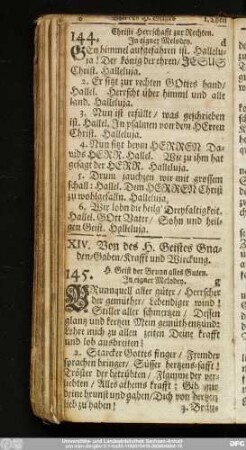 144. Christi Herrschafft zur Rechten.
In eigner Melodey.
GEn himmel aufgefahren ist. Hallelu-
ja! Der könig der ehren/ JESUS
Christ. Halleluja.
2. Er sitzt zur rechten GOttes hand/
Hallel. Herrscht über himml und alle
land. Halleluja.
3. Nun ist erfüllt/ was geschrieben
ist. Hallel. In psalmen von dem HErren
Christ. Halleluja.
4. Nun sitzt beym HERREN Da-
vids HERR. Hallel. Wie zu ihm hat
gesagt der HERR. Halleluja.
5. Drum jauchzen wir mit grossem
schall: Hallel. Dem HERREN Christ
zu wohlgefalln. Halleluja.
6. Wir lobn die heilg' Dreyfaltigkeit.
Hallel. GOtt Vatter/ Sohn und heil-
gen Geist. Halleluja.
XIV. Von des H. Geistes Gna-
den/Gaben/Krafft und Würckung.
145. H. Geist der Brunn alles Guten.
In eigner Melodey.
BRunnquell aller güter/ Herrscher
der gemüther/ Lebendiger wind!
Stiller aller schmertzen/ Dessen
glantz und kertzen Mein gemüth entzünd:
Lehre mich zu allen zeiten Deine krafft
und lob ausbreiten!
2. Starcker Gottes finger/ Fremder
sprachen bringer/ Süsser hertzens-safft!
Tröster der betrübten/ Flamme der ver-
liebten/ Alles athems krafft: Gib mir
deine brunst und gaben/ Dich von hertzen
lieb zu haben!